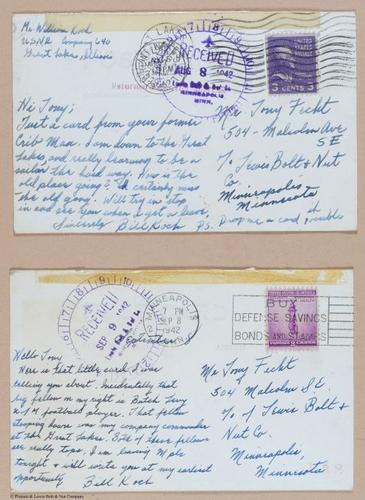 Mr William Koch
USNR Company 640
Great Lakes, Illinois
GREAT LAKES
1942
7 8 9 10
RECEIVED
AUG 8 1942
Lewis Bolt & Nut Co.
MINNEAPOLIS
MINN.
3 CENTS 3
Hi Tony;
Just a card from your former
Crib Man. I am down to the Great
Lakes and really learning to be a
sailor the hard way. How is the
old place going? I certainly miss
the old gang. Will try to stop
in and see you when I get a leave.
Sincerely Bill Koch
P.S. Drop me a card if possible
Mr Tony Ficht
504 - Malcolm Ave
SE
% Lewis Bolt & Nut
Co
Minneapolis
Minnesota
7 8 9 10
RECEIVED
SEP 9 1942
MINNEAPOLIS
7 PM
SEP 8
1942
MINN.
BUY
DEFENSE SAVINGS
BONDS AND STAMPS
September
Hello Tony
Here is that little card I was
telling you about. Incidentally that
big fellow on my right is Butch
football player. That fellow
stooping down was my company commander
at the Great Lakes. Both of these fellows
are really tops. I am leaving Mpls
tonight & will write you at my earliest
opportunity
Bill Koch
Mr Tony Ficht
504 Malcolm St.
% of Lewis Bolt &
Nut Co.
Minneapolis,
Minnesota
© Prosser & Lewis Bolt & Nut Company